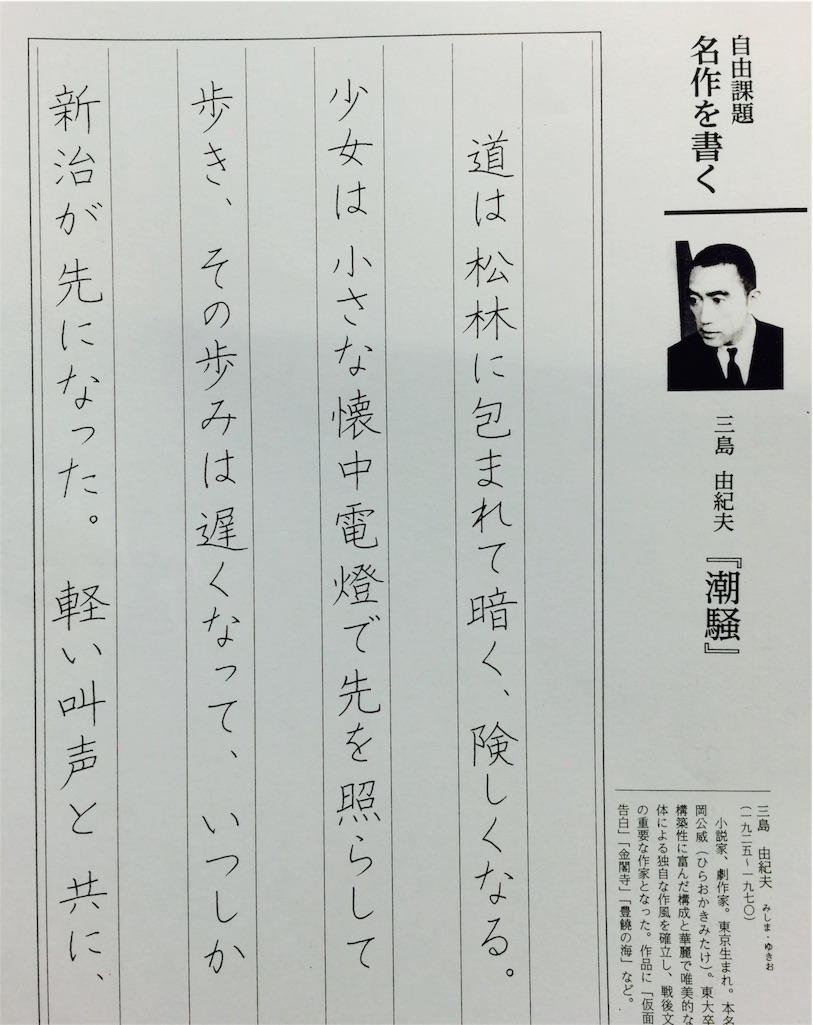 自由課題
名作を書く
三島 由紀夫 『潮騒』
三島 由紀夫 みしま・ゆきお
(一九二五〜一九七〇)
小説家、劇作家。東京生まれ。本名
岡公威(ひらおかきみたけ)。東大卒
構築性に富んだ構成と華麗で唯美的な
体による独自な作風を確立し、戦後文
の重要な作家となった。作品に「仮面
告白」「金閣寺」「豊饒の海」など。
道は松林に包まれて暗く、険しくなる。
少女は小さな懐中電燈で先を照らして
歩き、その歩みは遅くなって、いつしか
新治が先になった。軽い叫声と共に、